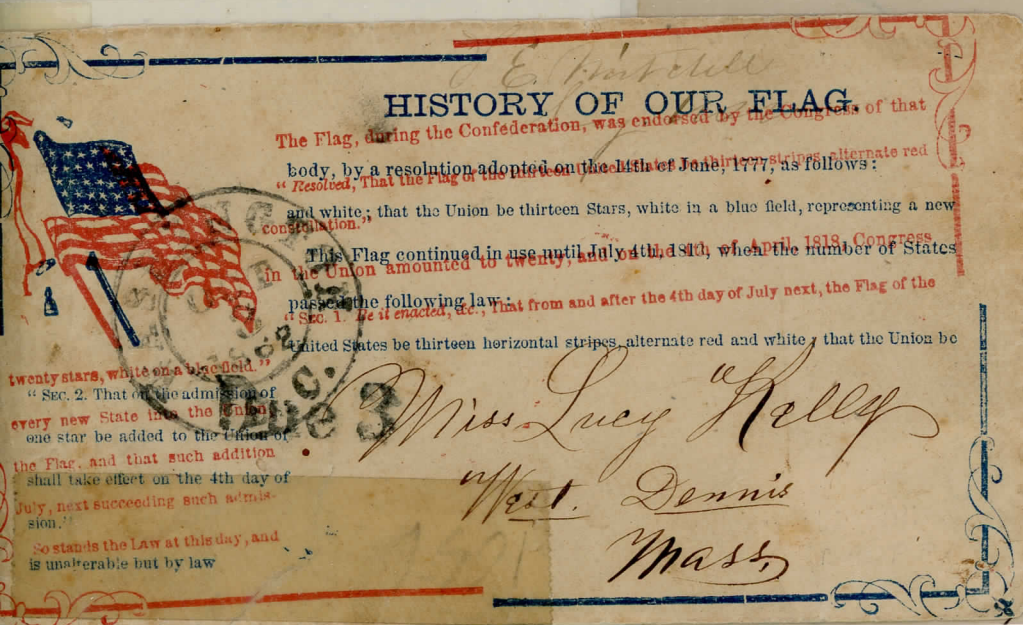 HISTORY OF OUR FLAG.
The Flag, during the Confederation, was endorsed by the Congress of that
body, by a resolution adopted on the 14th of June, 1777, as follows:
"Resolved, That the Flag of the thirteen United States be thirteen stripes, alternate red
and white; that the Union be thirteen Stars, white in a blue field, representing a new
constellation."
This Flag continued in use until July 4th, 1818, when the number of States
in the Union amounted to twenty, and on the 4th of April, 1818, Congress
passed the following law:
"Sec. 1. Be it enacted, &c., That from and after the 4th day of July next, the Flag of the
United States be thirteen horizontal stripes, alternate red and white; that the Union be
twenty stars, white on a blue field."
"Sec. 2. That on the admission of
every new State into the Union
one star be added to the Union of
the Flag, and that such addition
shall take effect on the 4th day of
July, next succeeding such admis-
sion."
So stands the Law at this day, and
is unalterable but by law
D.C.
Due 3
Miss Lucy Kelly
West Dennis
Mass,